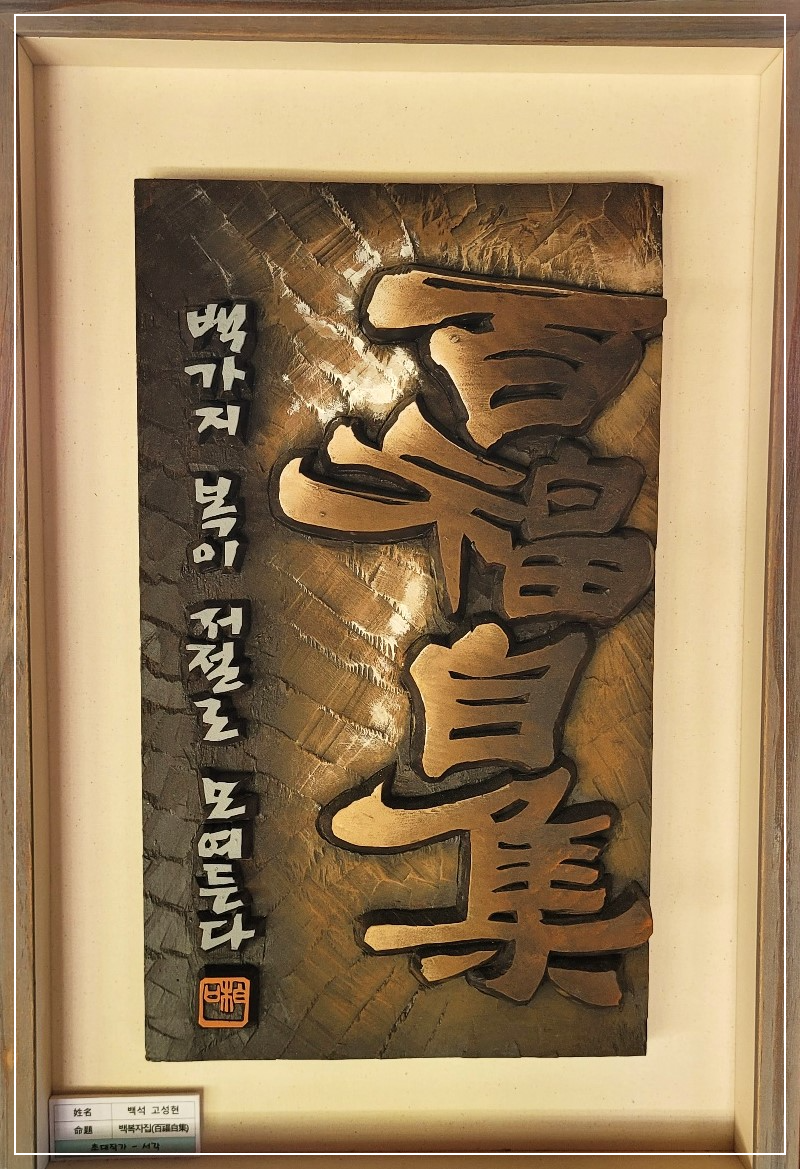 百福自集
백가지 복이 저절로 모여든다
姓名 백석 고성현
命題 백복자집(百福自集)
초대작가 - 서각